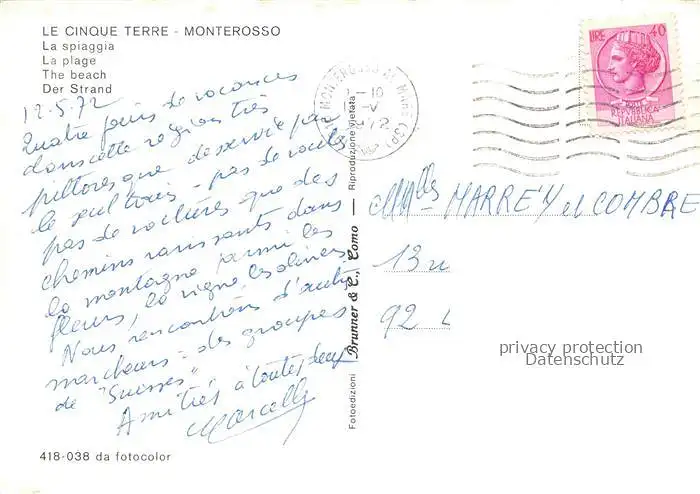 LE CINQUE TERRE - MONTEROSSO
La spiaggia
La plage
The beach
Der Strand
12.5.72
Quatre jours de vacances
dans cette région très
pittoresque desservie par
le seul train - pas de routes
pas de voitures que des
chemins ravissants dans
la montagne parmi les
fleurs, la vigne, les oliviers
Nous rencontrons d'autres
marcheurs - des groupes
de "Suisses"
Amitiés à toutes deux
Marcelle
418-038 da fotocolor
Fotoedizioni Brunner & C., Como — Riproduzione vietata
MONTEROSSO AL MARE (SP)
LIRE 40
REPUBBLICA
ITALIANA
Mlles MARREY et COMBRE
13
92
privacy protection
Datenschutz